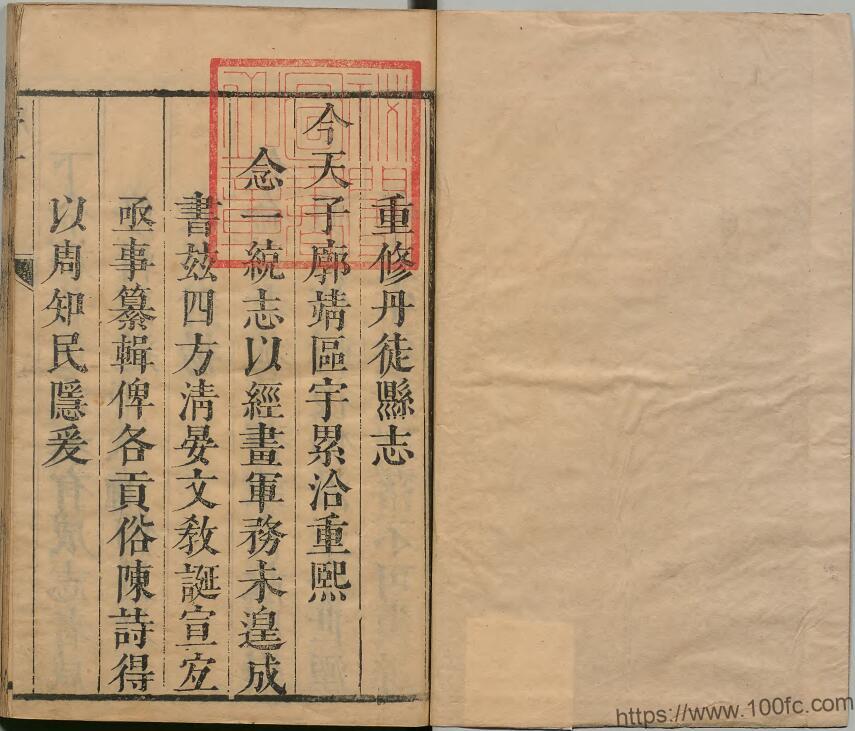 重修丹徒縣志
今天子廓靖區宇累洽重熙
念一統志以經畫軍務未遑成
書兹四方清晏文敎誕宣宜
亟事纂輯俾各貢俗陳詩得
以周知民隱爰
https://www.100fc.com